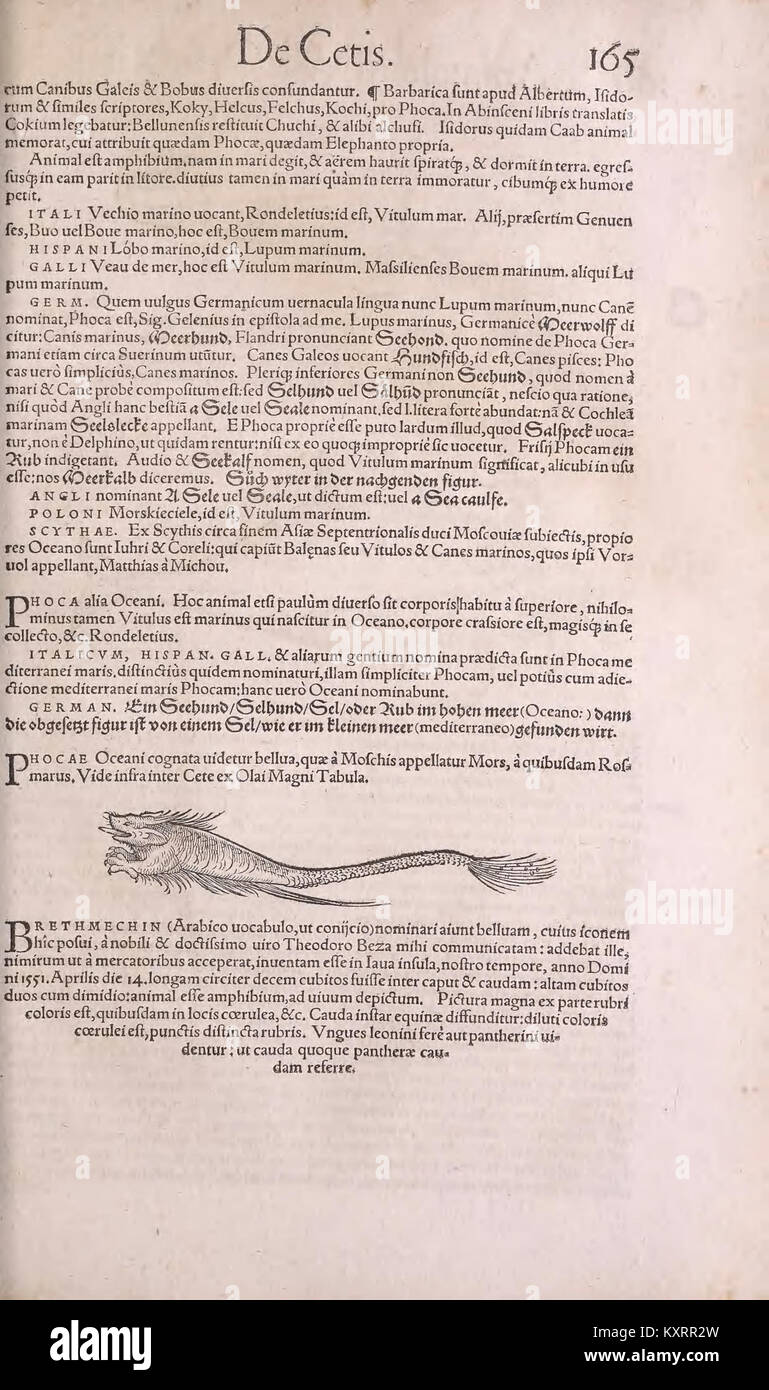 De Cetis. 165
cum Canibus Galeis & Bobus diuersis confundantur. ¶ Barbarica sunt apud Albertum, Isido-
rum & similes scriptores, Koky, Helcus, Felchus, Kochi, pro Phoca. In Abinsceni libris translatis
Cokium legebatur: Bellunensis restituit Chuchi, & alibi alchusi. Isidorus quidam Caab animal
memorat, cui attribuit quædam Phocæ, quædam Elephanto propria.
Animal est amphibium. nam in mari degit, & aërem haurit spiratq́;, & dormit in terra. egres-
susq́; in eam parit in litore. diutius tamen in mari quàm in terra immoratur, cibumq́; ex humore
petit.
ITALI Vechio marino uocant, Rondeletius: id est, Vitulum mar. Alij, præsertim Genuen
ses, Buo uel Boue marino, hoc est, Bouem marinum.
HISPANI Lóbo marino, id est, Lupum marinum.
GALLI Veau de mer, hoc est Vitulum marinum. Massilienses Bouem marinum. aliqui Lu
pum marinum.
GERM. Quem uulgus Germanicum uernacula lingua nunc Lupum marinum, nunc Canẽ
nominat, Phoca est, Sig. Gelenius in epistola ad me. Lupus marinus, Germanicè Meerwolff di
citur: Canis marinus, Meerhund, Flandri pronunciant Seehond. quo nomine de Phoca Ger-
mani etiam circa Suerinum utũtur. Canes Galeos uocant Hundfisch, id est, Canes pisces: Pho
cas uerò simplicius, Canes marinos. Pleriq; inferiores Germani non Seehund, quod nomen à
mari & Cane probè compositum est: sed Selhund uel Sälhũd pronunciãt, nescio qua ratione,
nisi quòd Angli hanc bestiã a Sele uel Seale nominant, sed l. litera fortè abundat: nã & Cochleã
marinam Seelslecke appellant. E Phoca propriè esse puto lardum illud, quod Salspeck uoca-
tur, non è Delphino, ut quidam rentur: nisi ex eo quoq; impropriè sic uocetur. Frisij Phocam ein
Rub indigetant. Audio & Seekalf nomen, quod Vitulum marinum significat, alicubi in usu
esse: nos Meerkalb diceremus. Sůch wyter in der nachgenden figur.
ANGLI nominant A Sele uel Seale, ut dictum est: uel a Sea caulfe.
POLONI Morskieciele, id est, Vitulum marinum.
SCYTHAE. Ex Scythis circa finem Asiæ Septentrionalis duci Moscouiæ subiectis, propio
res Oceano sunt Iuhri & Coreli: qui capiũt Balęnas seu Vitulos & Canes marinos, quos ipsi Vor-
uol appellant, Matthias à Michou.
PHOCA alia Oceani. Hoc animal etsi paulùm diuerso sit corporis habitu à superiore, nihilo-
minus tamen Vitulus est marinus qui nascitur in Oceano. corpore crassiore est, magisq́; in se
collecto, &c. Rondeletius.
ITALICVM, HISPAN. GALL. & aliarum gentium nomina prædicta sunt in Phoca me
diterranei maris. distinctiùs quidem nominaturi, illam simpliciter Phocam, uel potiùs cum adie-
ctione mediterranei maris Phocam: hanc uerò Oceani nominabunt.
GERMAN. Ein Seehund/Selhund/Sel/oder Rub im hohen meer (Oceano:) dann
die obgesetzt figur ist von einem Sel/wie er im kleinen meer (mediterraneo) gefunden wirt.
PHOCAE Oceani cognata uidetur bellua, quæ à Moschis appellatur Mors, à quibusdam Ros-
marus. Vide infra inter Cete ex Olai Magni Tabula.
BRETHMECHIN (Arabico uocabulo, ut conijcio) nominari aiunt belluam, cuius iconem
hîc posui, à nobili & doctissimo uiro Theodoro Beza mihi communicatam: addebat ille,
nimirum ut à mercatoribus acceperat, inuentam esse in Iaua insula, nostro tempore, anno Domi
ni 1551. Aprilis die 14. longam circiter decem cubitos fuisse inter caput & caudam: altam cubitos
duos cum dimidio: animal esse amphibium, ad uiuum depictum. Pictura magna ex parte rubri
coloris est, quibusdam in locis cœrulea, &c. Cauda instar equinæ diffunditur: diluti coloris
cœrulei est, punctis distincta rubris. Vngues leonini ferè aut pantherini ui-
dentur: ut cauda quoque pantheræ cau-
dam referre.
alamy
alamy
alamy
alamy
Image ID: KXRR2W
www.alamy.com